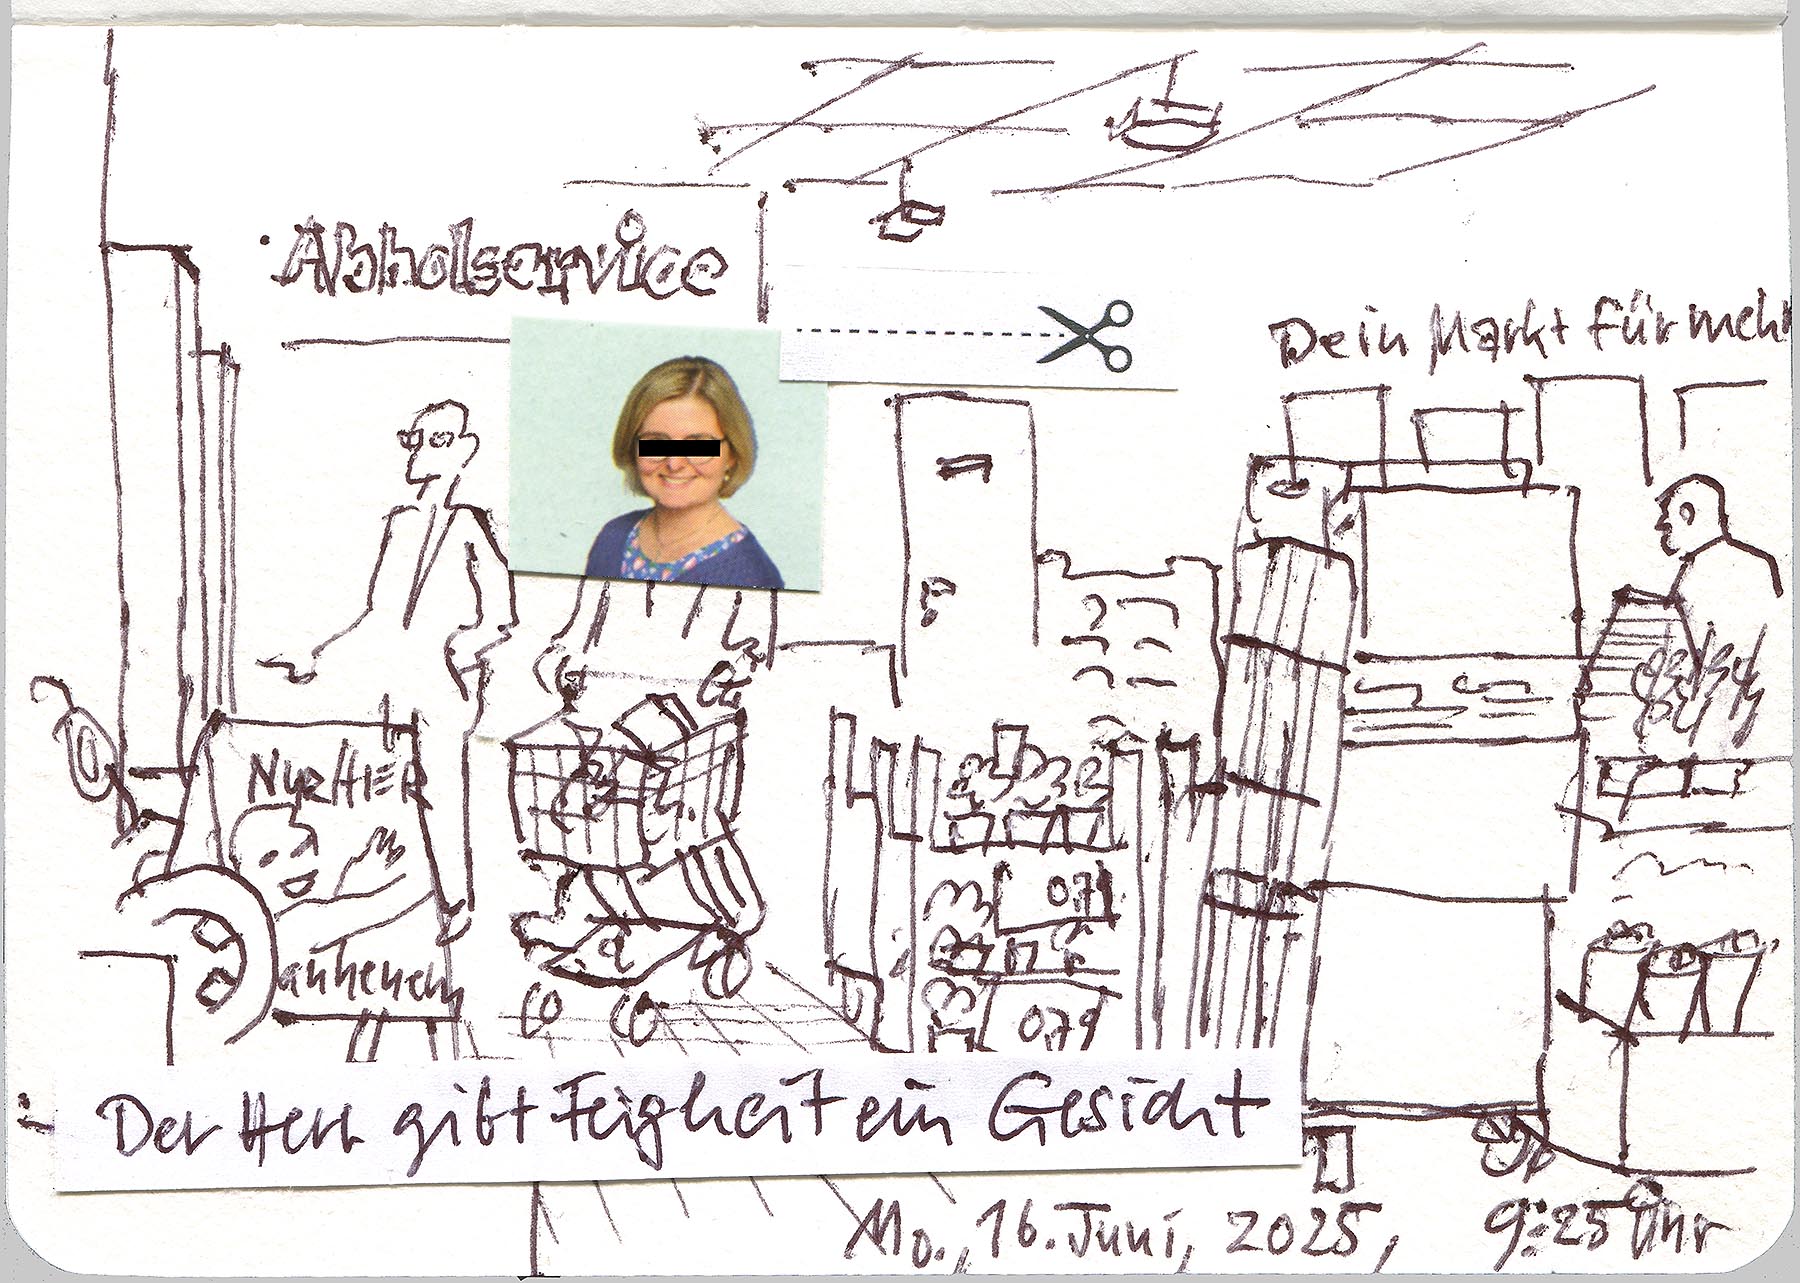 Abholservice
Dein Markt für mehr
NUR HIER
anhenem
079
079
Der Herr gibt Feigheit ein Gesicht
Mo., 16. Juni, 2025, 9:25 Uhr